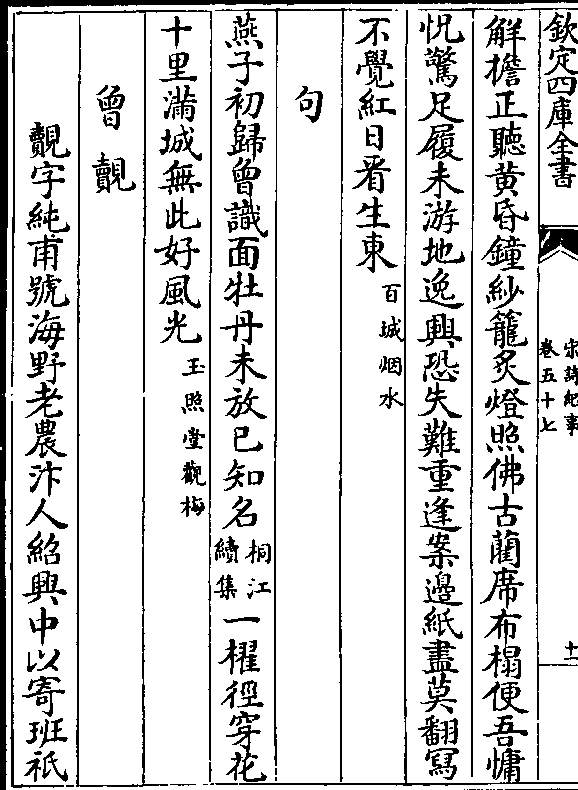 欽定四庫全書
宋詩紀事
卷五十七
十一
解擔正聽黄昏鐘紗籠炙燈照佛古藺席布榻便吾慵
怳驚足履未游地逸興恐失難重逢案邊紙盡莫翻寫
不覺紅日看生東百城烟水
句
燕子初歸曾識面牡丹未放已知名桐江續集一櫂徑穿花
十里滿城無此好風光玉照堂觀梅
曾覿
覿字純甫號海野老農汴人紹興中以寄班祗